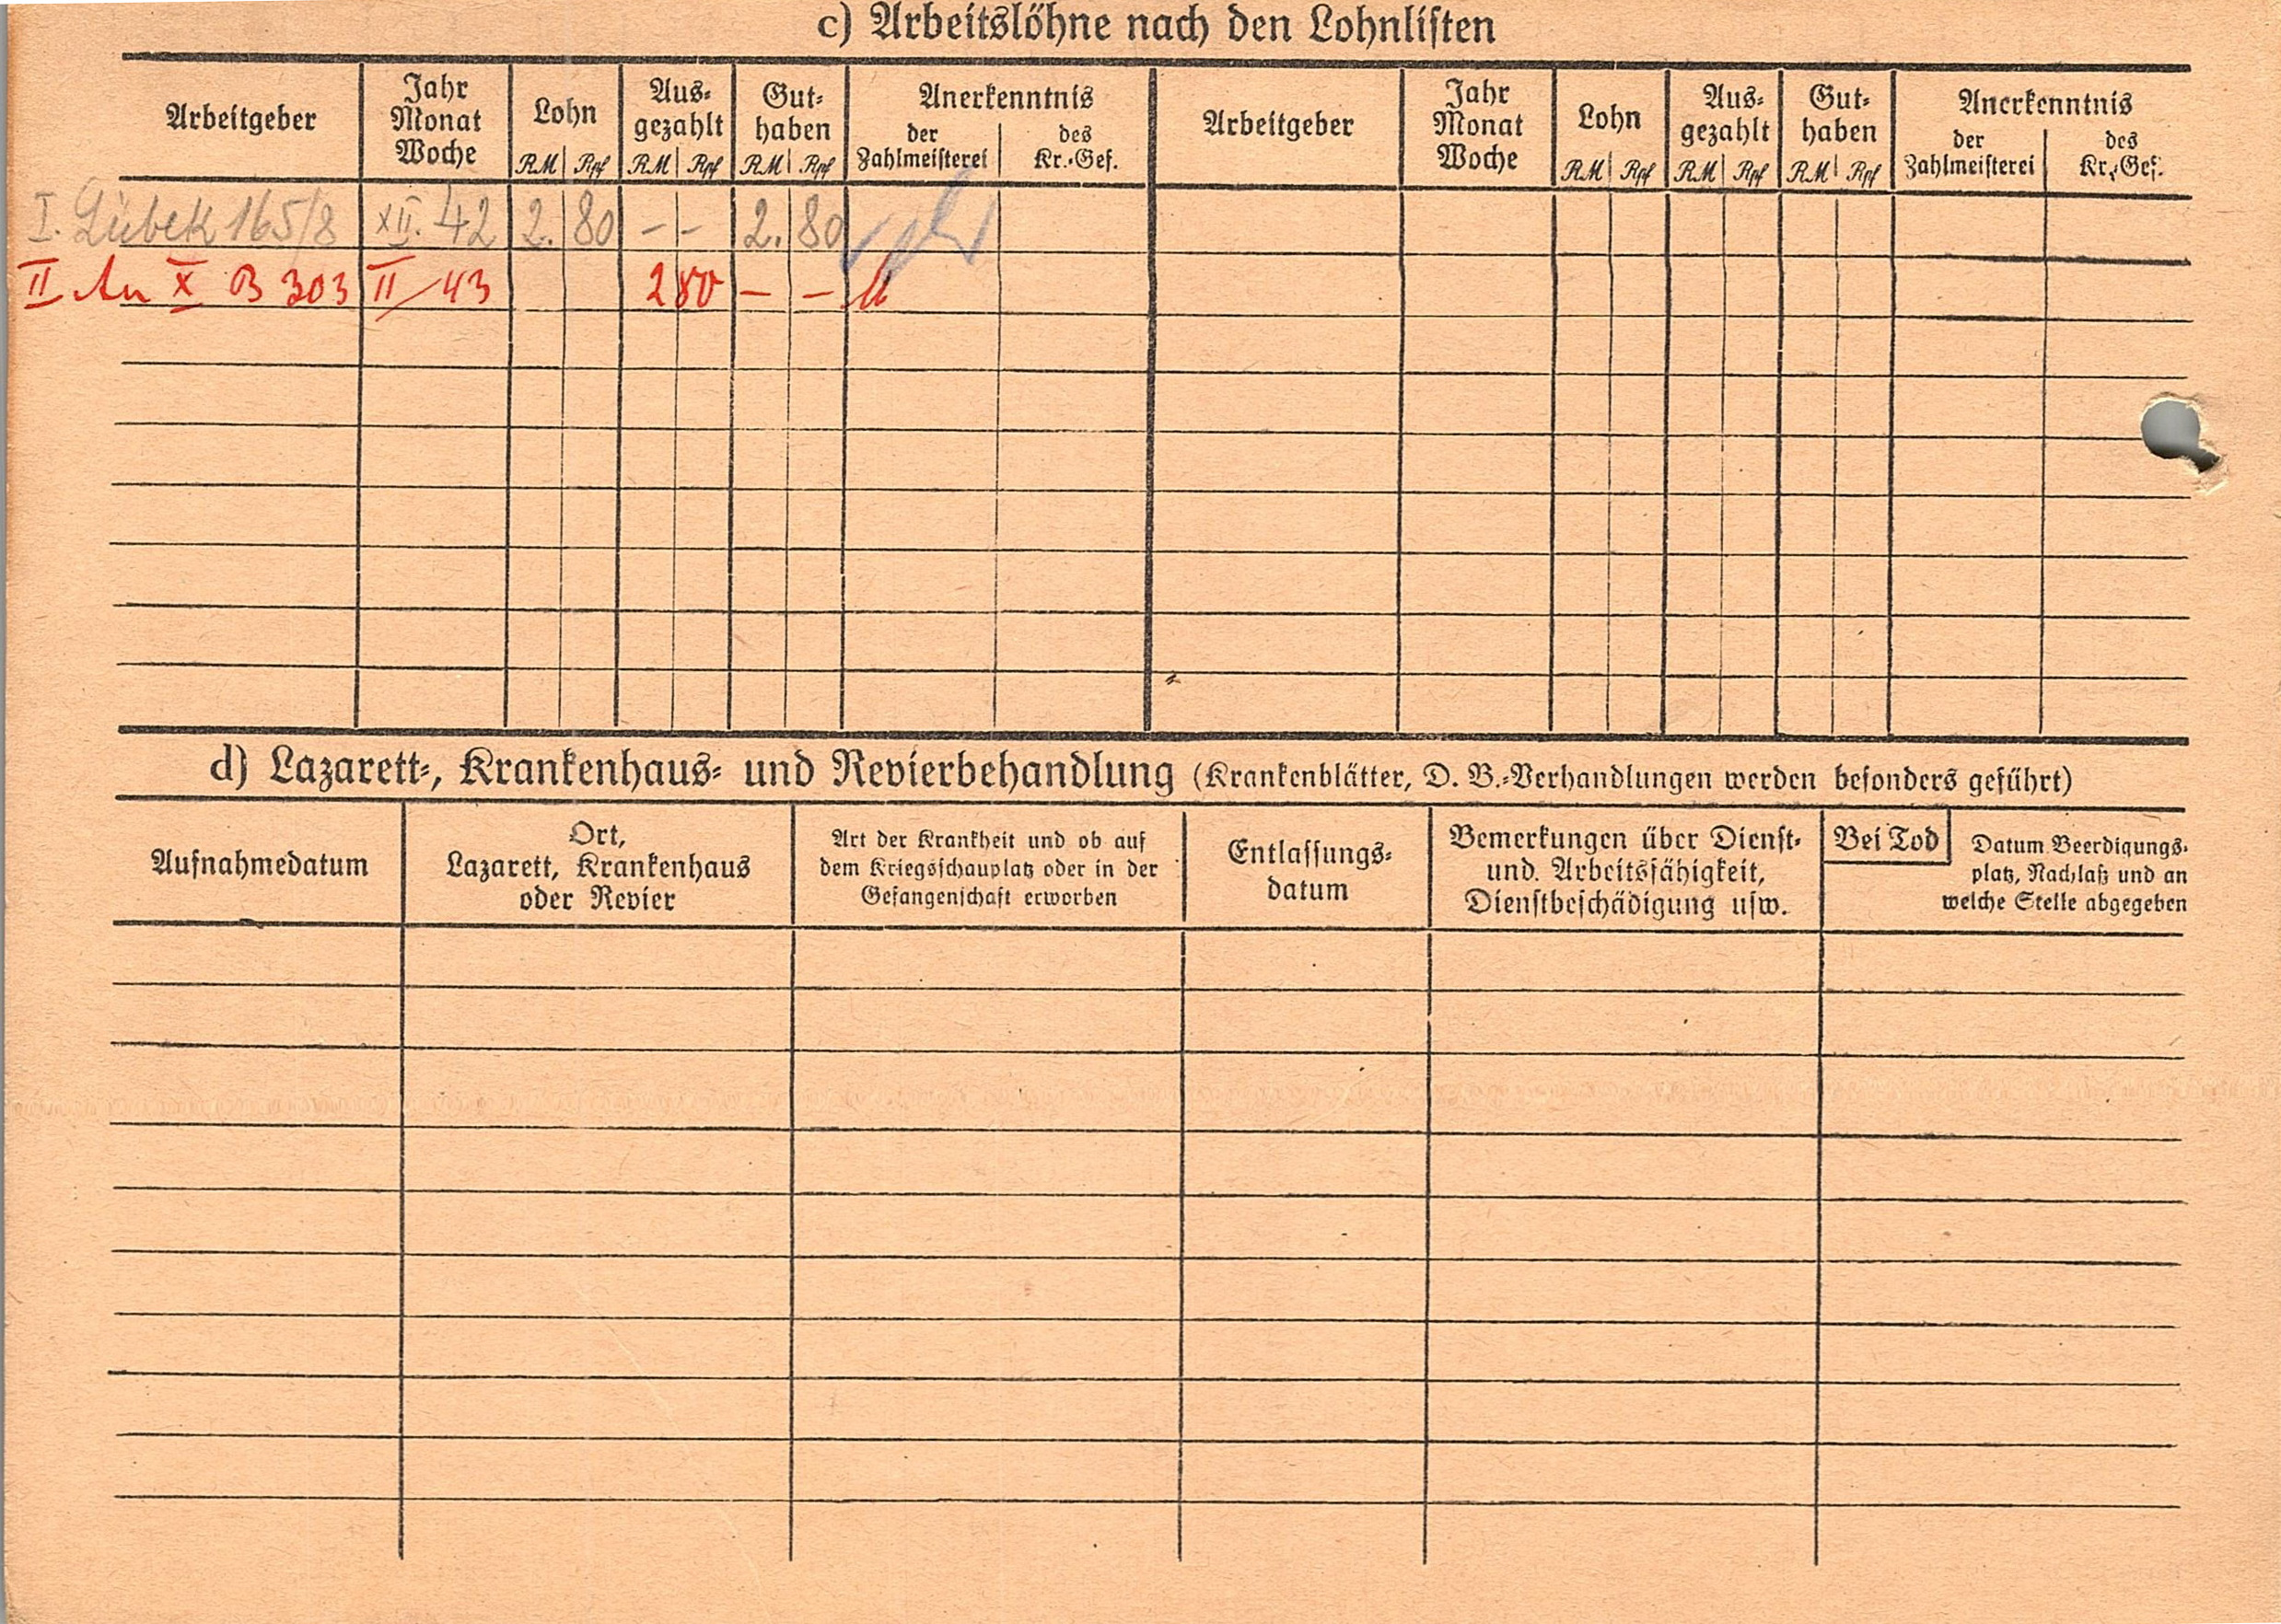 c) Arbeitslöhne nach den Lohnlisten
Arbeitgeber
Jahr
Monat
Woche
Lohn
RM Rpf
Aus-
gezahlt
RM Rpf
Gut-
haben
RM Rpf
Anerkenntnis
der
Zahlmeisterei
des
Kr.-Gef.
Arbeitgeber
Jahr
Monat
Woche
Lohn
RM Rpf
Aus-
gezahlt
RM Rpf
Gut-
haben
RM Rpf
Anerkenntnis
der
Zahlmeisterei
des
Kr.-Gef.
I. Lübek 165/8 XII. 42 2. 80 - - 2. 80
II An X B 303 II/43 2 80 - -
d) Lazarett-, Krankenhaus- und Revierbehandlung (Krankenblätter, D. B.-Verhandlungen werden besonders geführt)
Aufnahmedatum
Ort,
Lazarett, Krankenhaus
oder Revier
Art der Krankheit und ob auf
dem Kriegsschauplatz oder in der
Gefangenschaft erworben
Entlassungs-
datum
Bemerkungen über Dienst-
und. Arbeitsfähigkeit,
Dienstbeschädigung usw.
Bei Tod
Datum Beerdigungs-
platz, Nachlaß und an
welche Stelle abgegeben